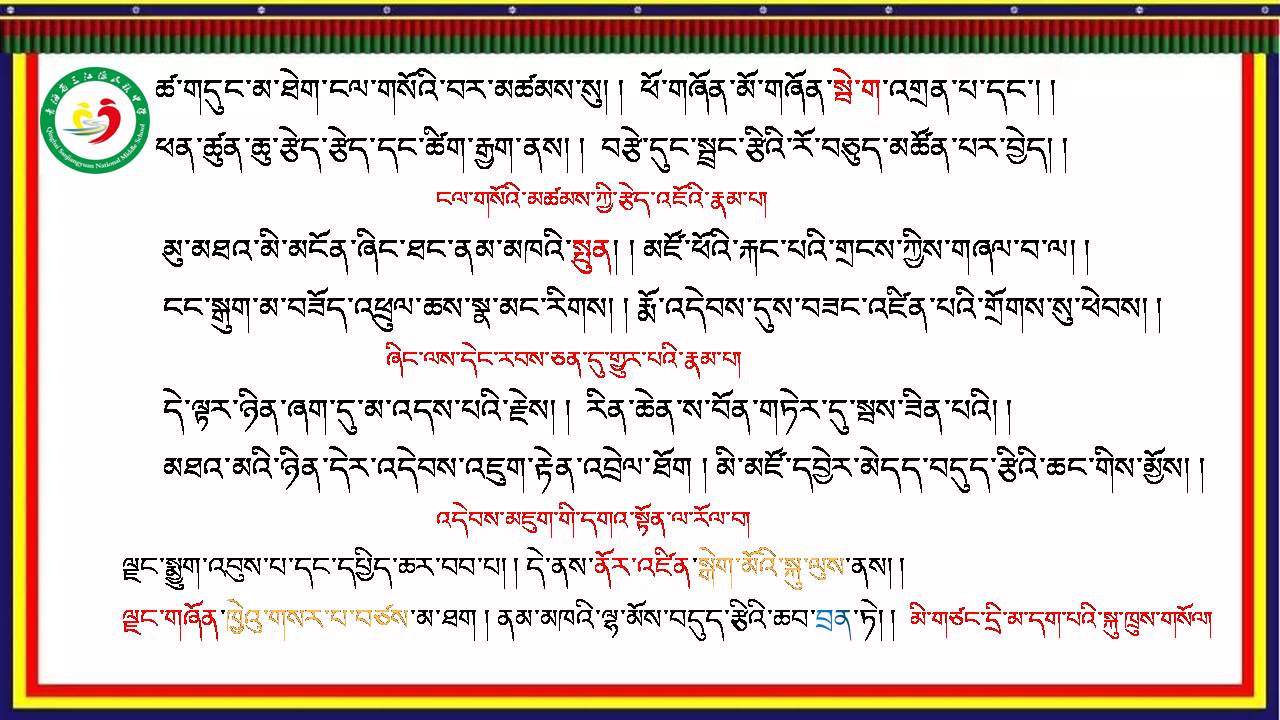 青海省三江源民族中学
Qinghai Sanjiangyuan National Middle School
ཚ་གདུང་མ་ཐེག་ངལ་གསོའི་བར་མཚམས་སུ། ། ཕོ་གཞོན་མོ་གཞོན་སྦེ་ག་འགྲན་པ་དང་། །
ཕན་ཚུན་ཆུ་རྩེད་རྩེད་དང་ཚིག་རྒྱག་ནས། ། བརྩེ་དུང་སྦྲང་རྩིའི་རོ་བཅུད་མཚོན་པར་བྱེད། །
ངལ་གསོའི་མཚམས་ཀྱི་རྩེད་འཇོའི་རྣམ་པ།
མུ་མཐའ་མི་མངོན་ཞིང་ཐང་ནམ་མཁའི་སྤུན། ། མཛོ་ཕོའི་རྐང་པའི་གྲངས་ཀྱིས་གཞལ་བ་ལ། །
ངང་སྒུག་མ་བཟོད་འཕྲུལ་ཆས་སྣ་མང་རིགས། ། རྨོ་འདེབས་དུས་བཟང་འཛིན་པའི་གྲོགས་སུ་ཕེབས། །
ཞིང་ལས་དེང་རབས་ཅན་དུ་གྱུར་པའི་རྣམ་པ།
དེ་ལྟར་ཉིན་ཞག་དུ་མ་འདས་པའི་རྗེས། ། རིན་ཆེན་ས་བོན་གཏེར་དུ་སྦས་ཟིན་པའི། །
མཐའ་མའི་ཉིན་དེར་འདེབས་འཇུག་རྟེན་འབྲེལ་ཐོག ། མི་མཛོ་དབྱེར་མེདད་བདུད་རྩིའི་ཆང་གིས་མྱོས། །
འདེབས་མཇུག་གི་དགའ་སྟོན་ལ་རོལ་བ།
ལྗང་སྨྱུག་འབུས་པ་དང་དཔྱིད་ཆར་བབ་པ། ། དེ་ནས་ནོར་འཛིན་སྒེག་མོའི་སྐུ་ལུས་ནས། །
ལྗང་གཞོན་ཁྱེའུ་གསར་པ་བཙས་མ་ཐག ། ནམ་མཁའི་ལྷ་མོས་བདུད་རྩིའི་ཆབ་བྲན་ཏེ། ། མི་གཙང་དྲི་མ་དག་པའི་སྐུ་ཁྲུས་གསོལ།